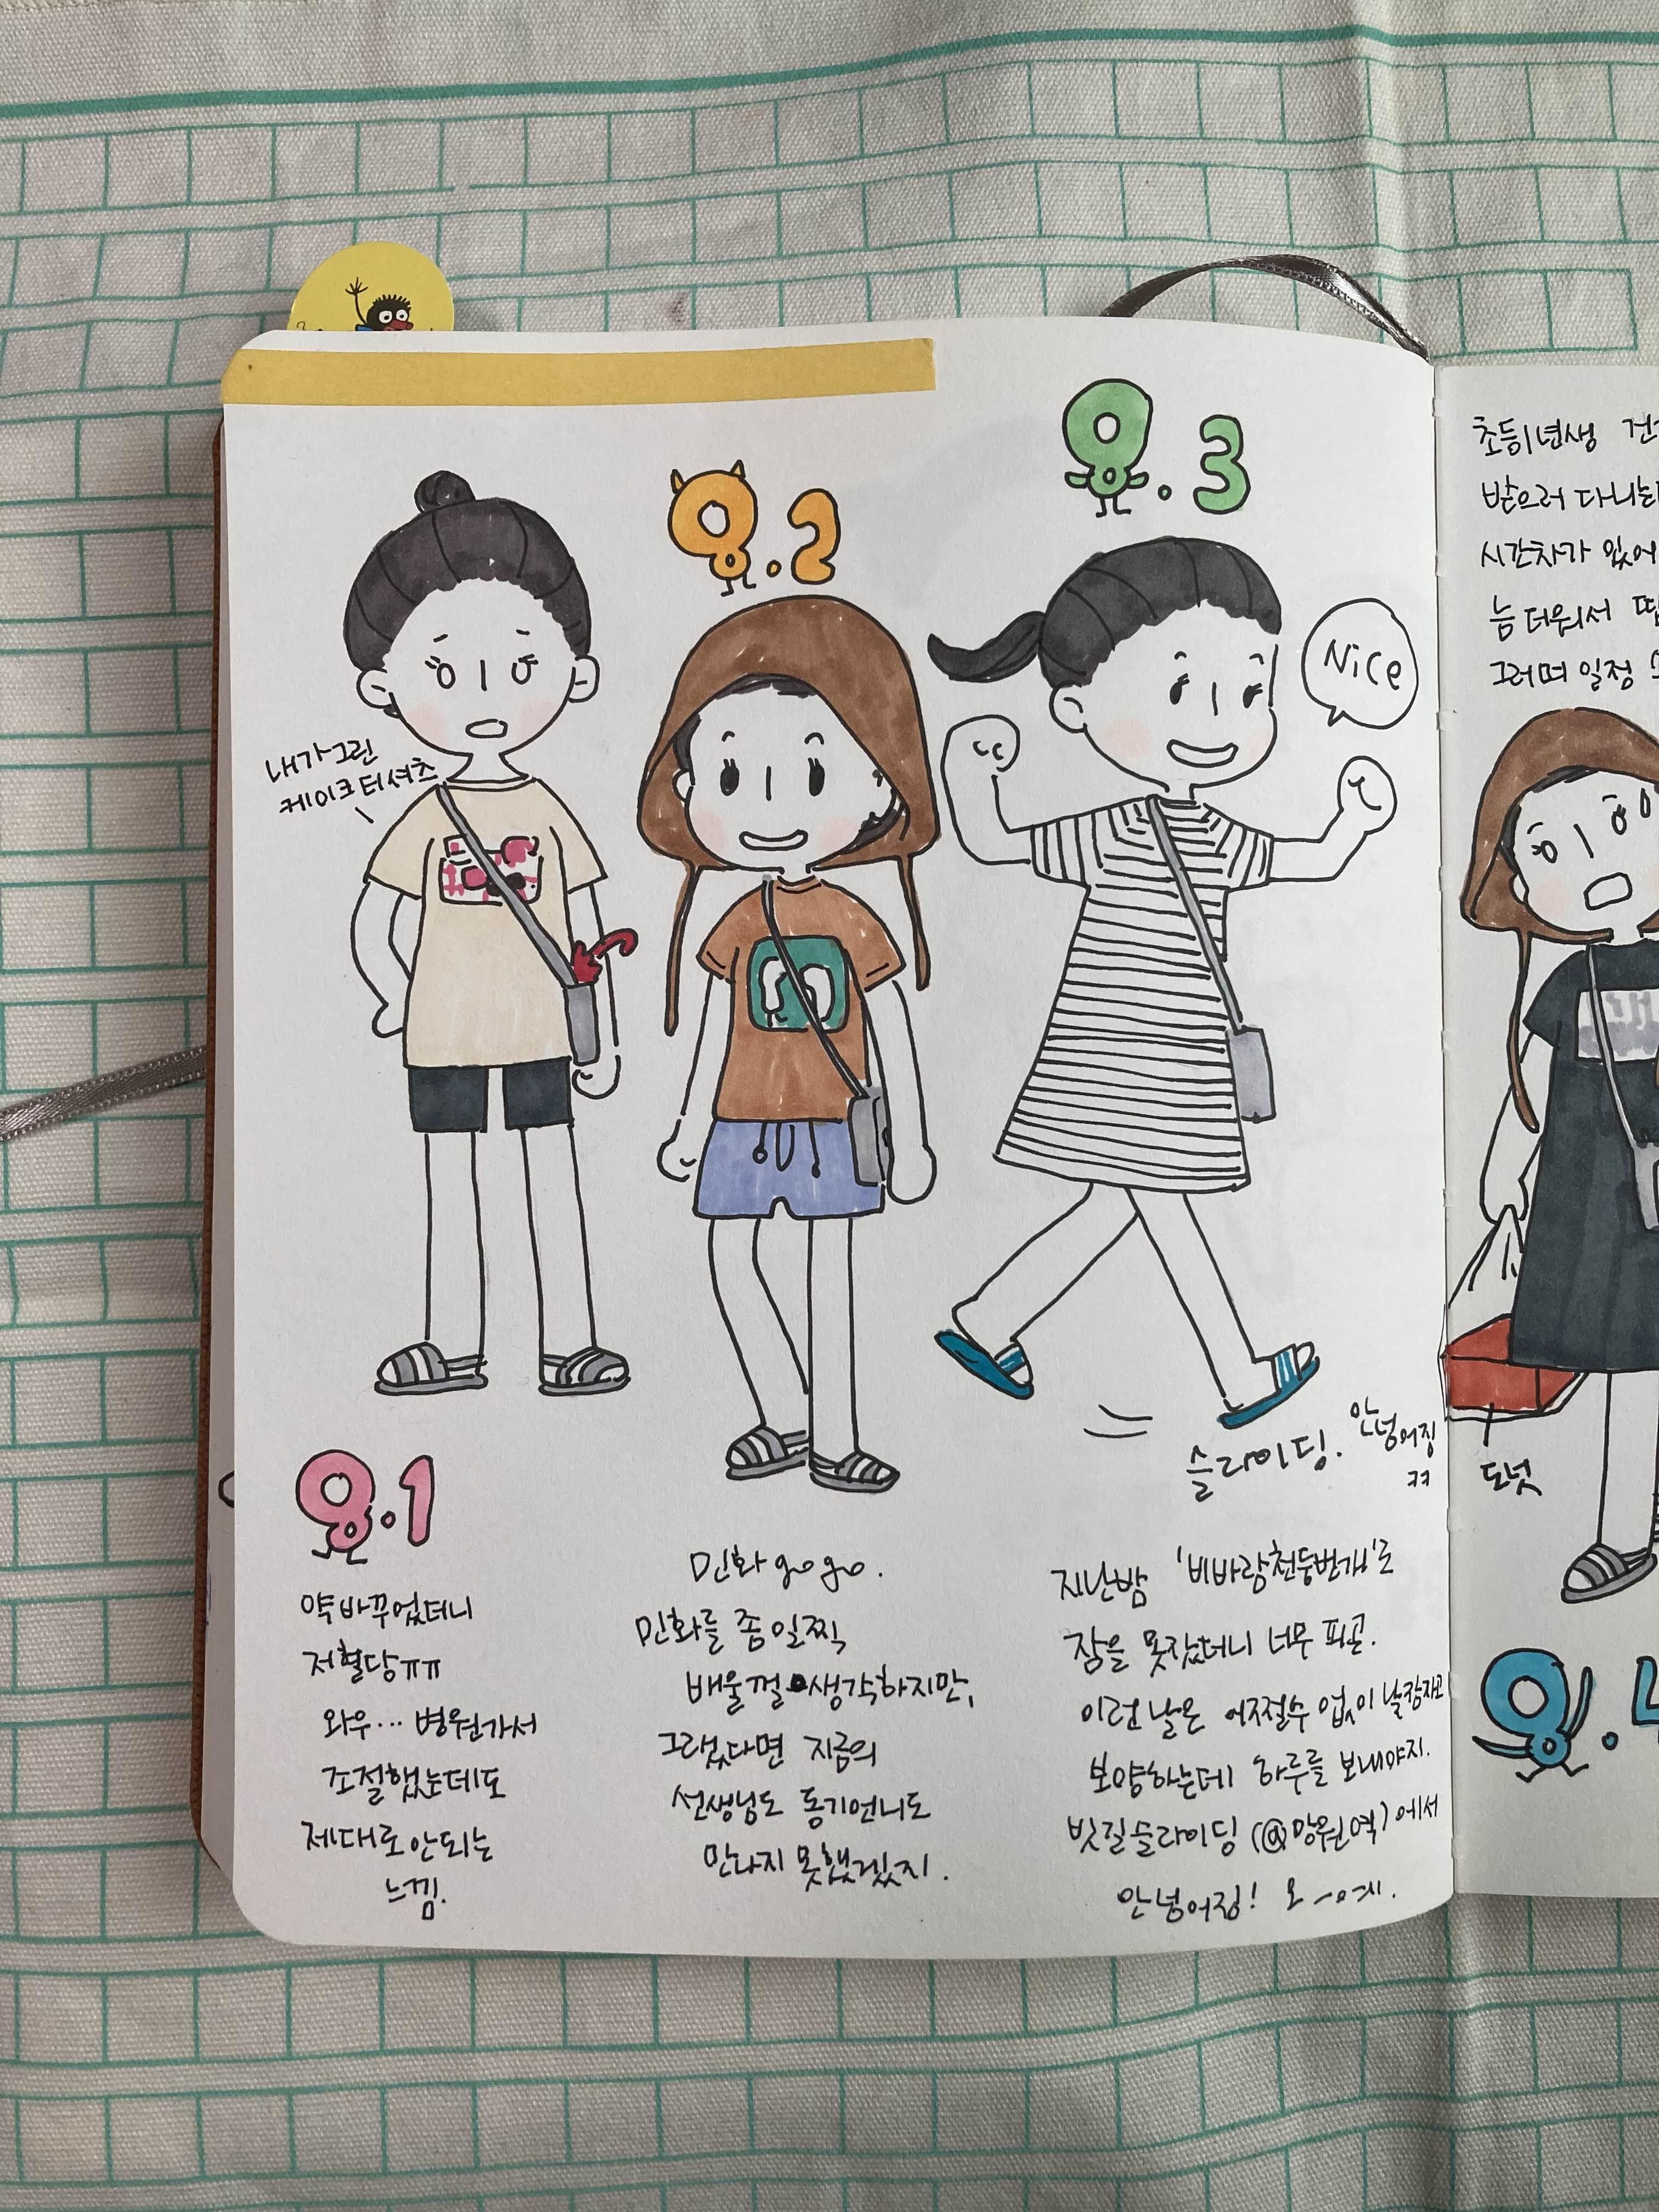 내가그린
케이크티셔츠
8.1
약바꾸었더니
저혈당ㅠㅠ
와우... 병원가서
조절했는데도
제대로안되는
느낌.
8.2
민화 gogo.
민화를 좀 일찍
배울껄 생각하지만,
그랬다면 지금의
선생님도 동기언니도
만나지 못했겠지.
8.3
Nice
슬라이딩.
안넘어짐
ㅋㅋ
지난밤 '비바람천둥번개'로
잠을 못잤더니 너무 피곤.
이런 날은 어쩔수 없이 낮잠자고
보양하는데 하루를 보내야지.
빗길슬라이딩 (@망원역)에서
안넘어짐! 오-예.
초등1년생
받으러 다니는
시간차가 있어
늠 더워서
그러며 일정
도넛
8.4